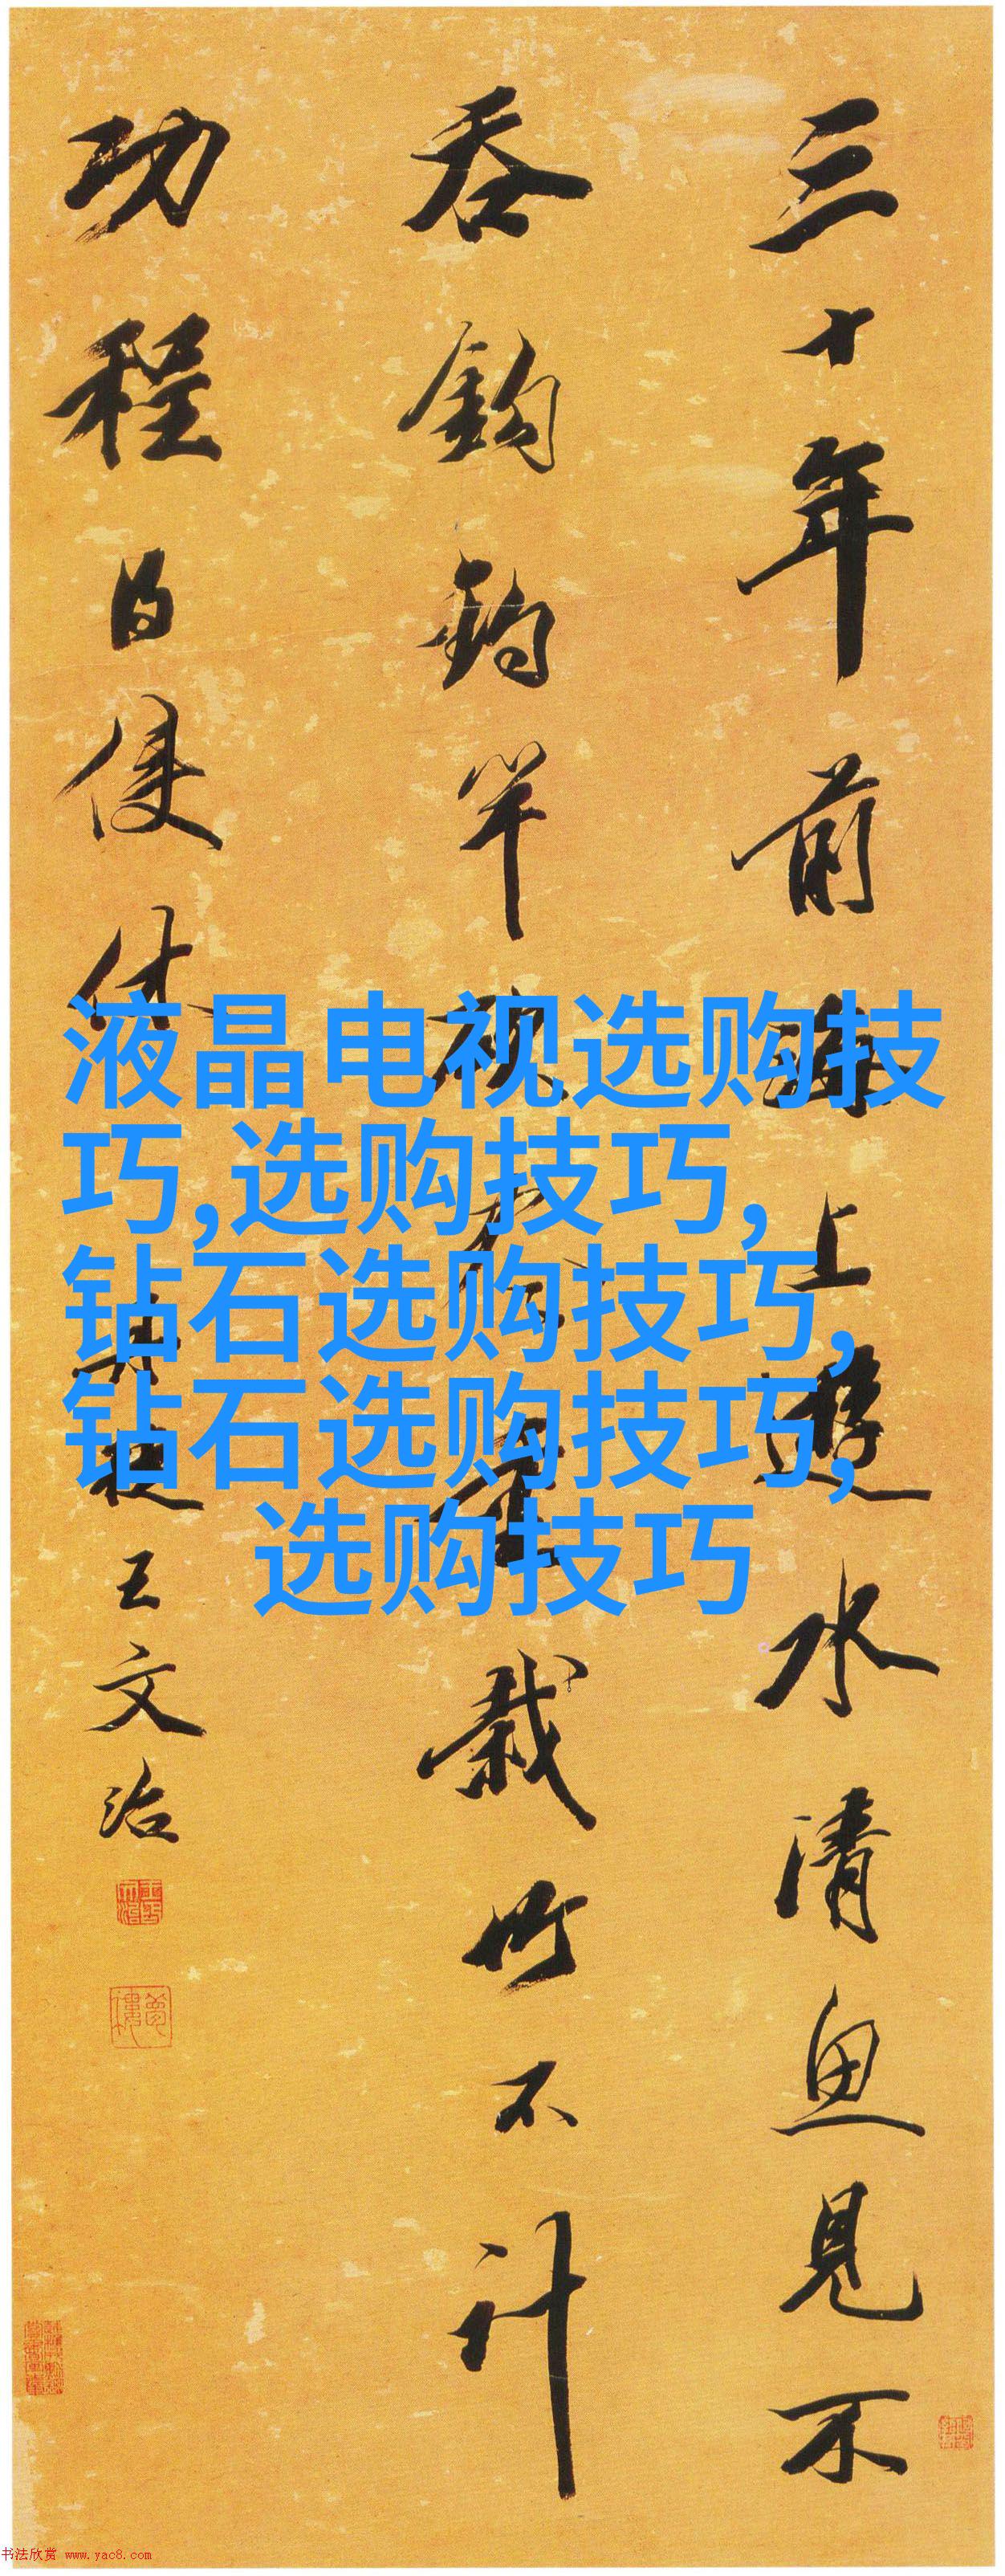 三十年前海上遊水清魚見不
吞鈎鈎竿砍盡重栽竹不計
功程得便休
王文治
液晶电视选购技
巧,选购技巧,
钻石选购技巧,
钻石选购技巧,
选购技巧
书法欣赏 www.yac8.com